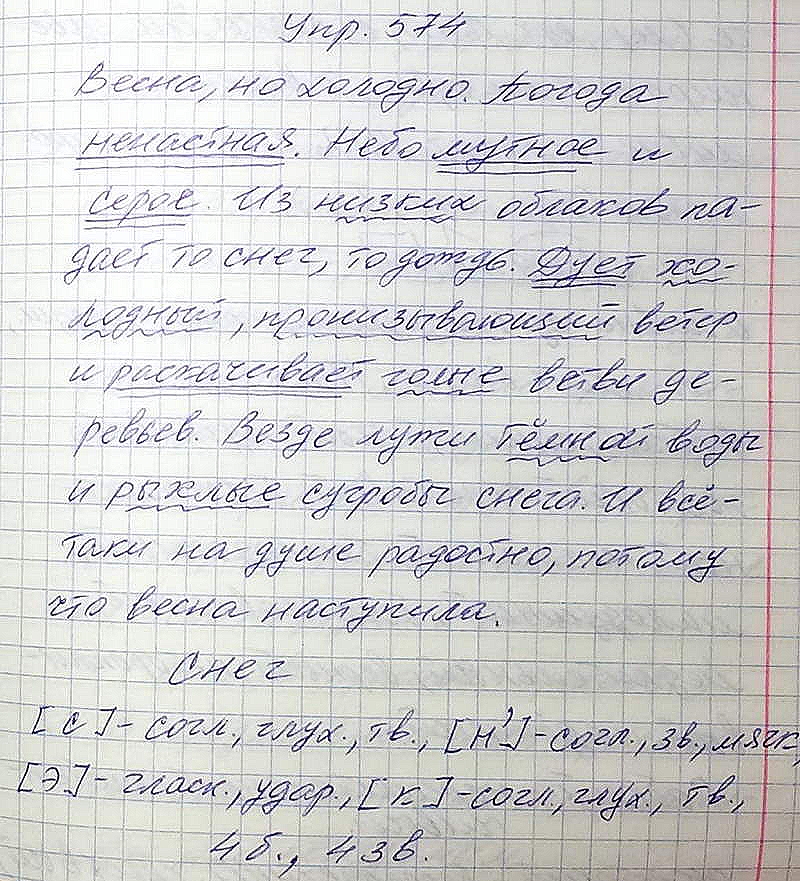 Упр. 574
Весна, но холодно. Погода
ненастная. Небо мутное и
серое. Из низких облаков па-
дает то снег, то дождь. Дует хо-
лодный, пронизывающий ветер
и раскачивает голые ветви де-
ревьев. Везде лужи тёмной воды
и рыхлые сугробы снега. И всё-
таки на душе радостно, потому
что весна наступила.
Снег
[с]- согл., глух., тв., [н']-согл., зв., мягк,
[э]- гласн., удар., [к]-согл, глух., тв.,
4 б., 4 зв.